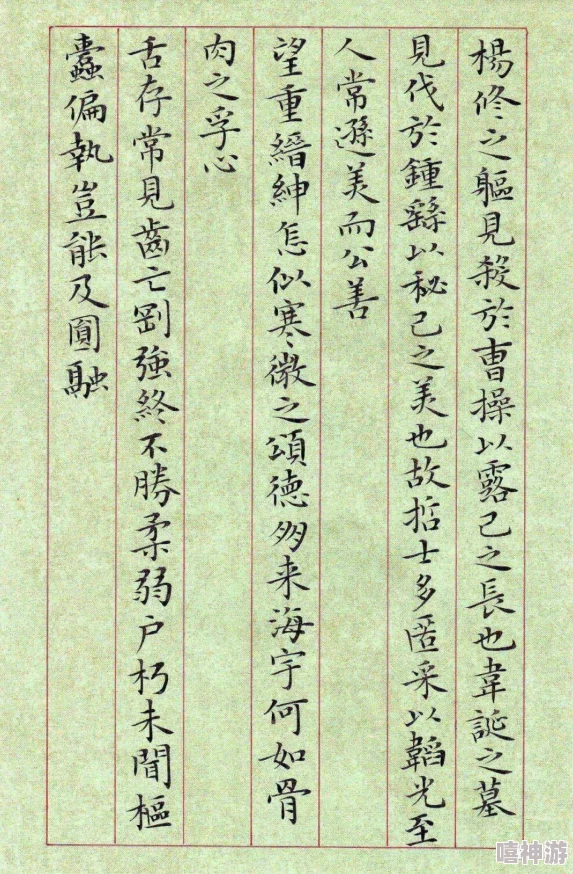 楊修之軀見殺於曹操以露己之長也韋誕之墓
見伐於鍾繇以秘己之美也故哲士多匿采以韜光至
人常遜美而公善
望重縉紳怎似寒微之頌德朋来海宇何如骨
肉之孚心
舌存常見齒亡剛強終不勝柔弱户朽未聞樞
蠹偏執豈能及圓融
嘻神游